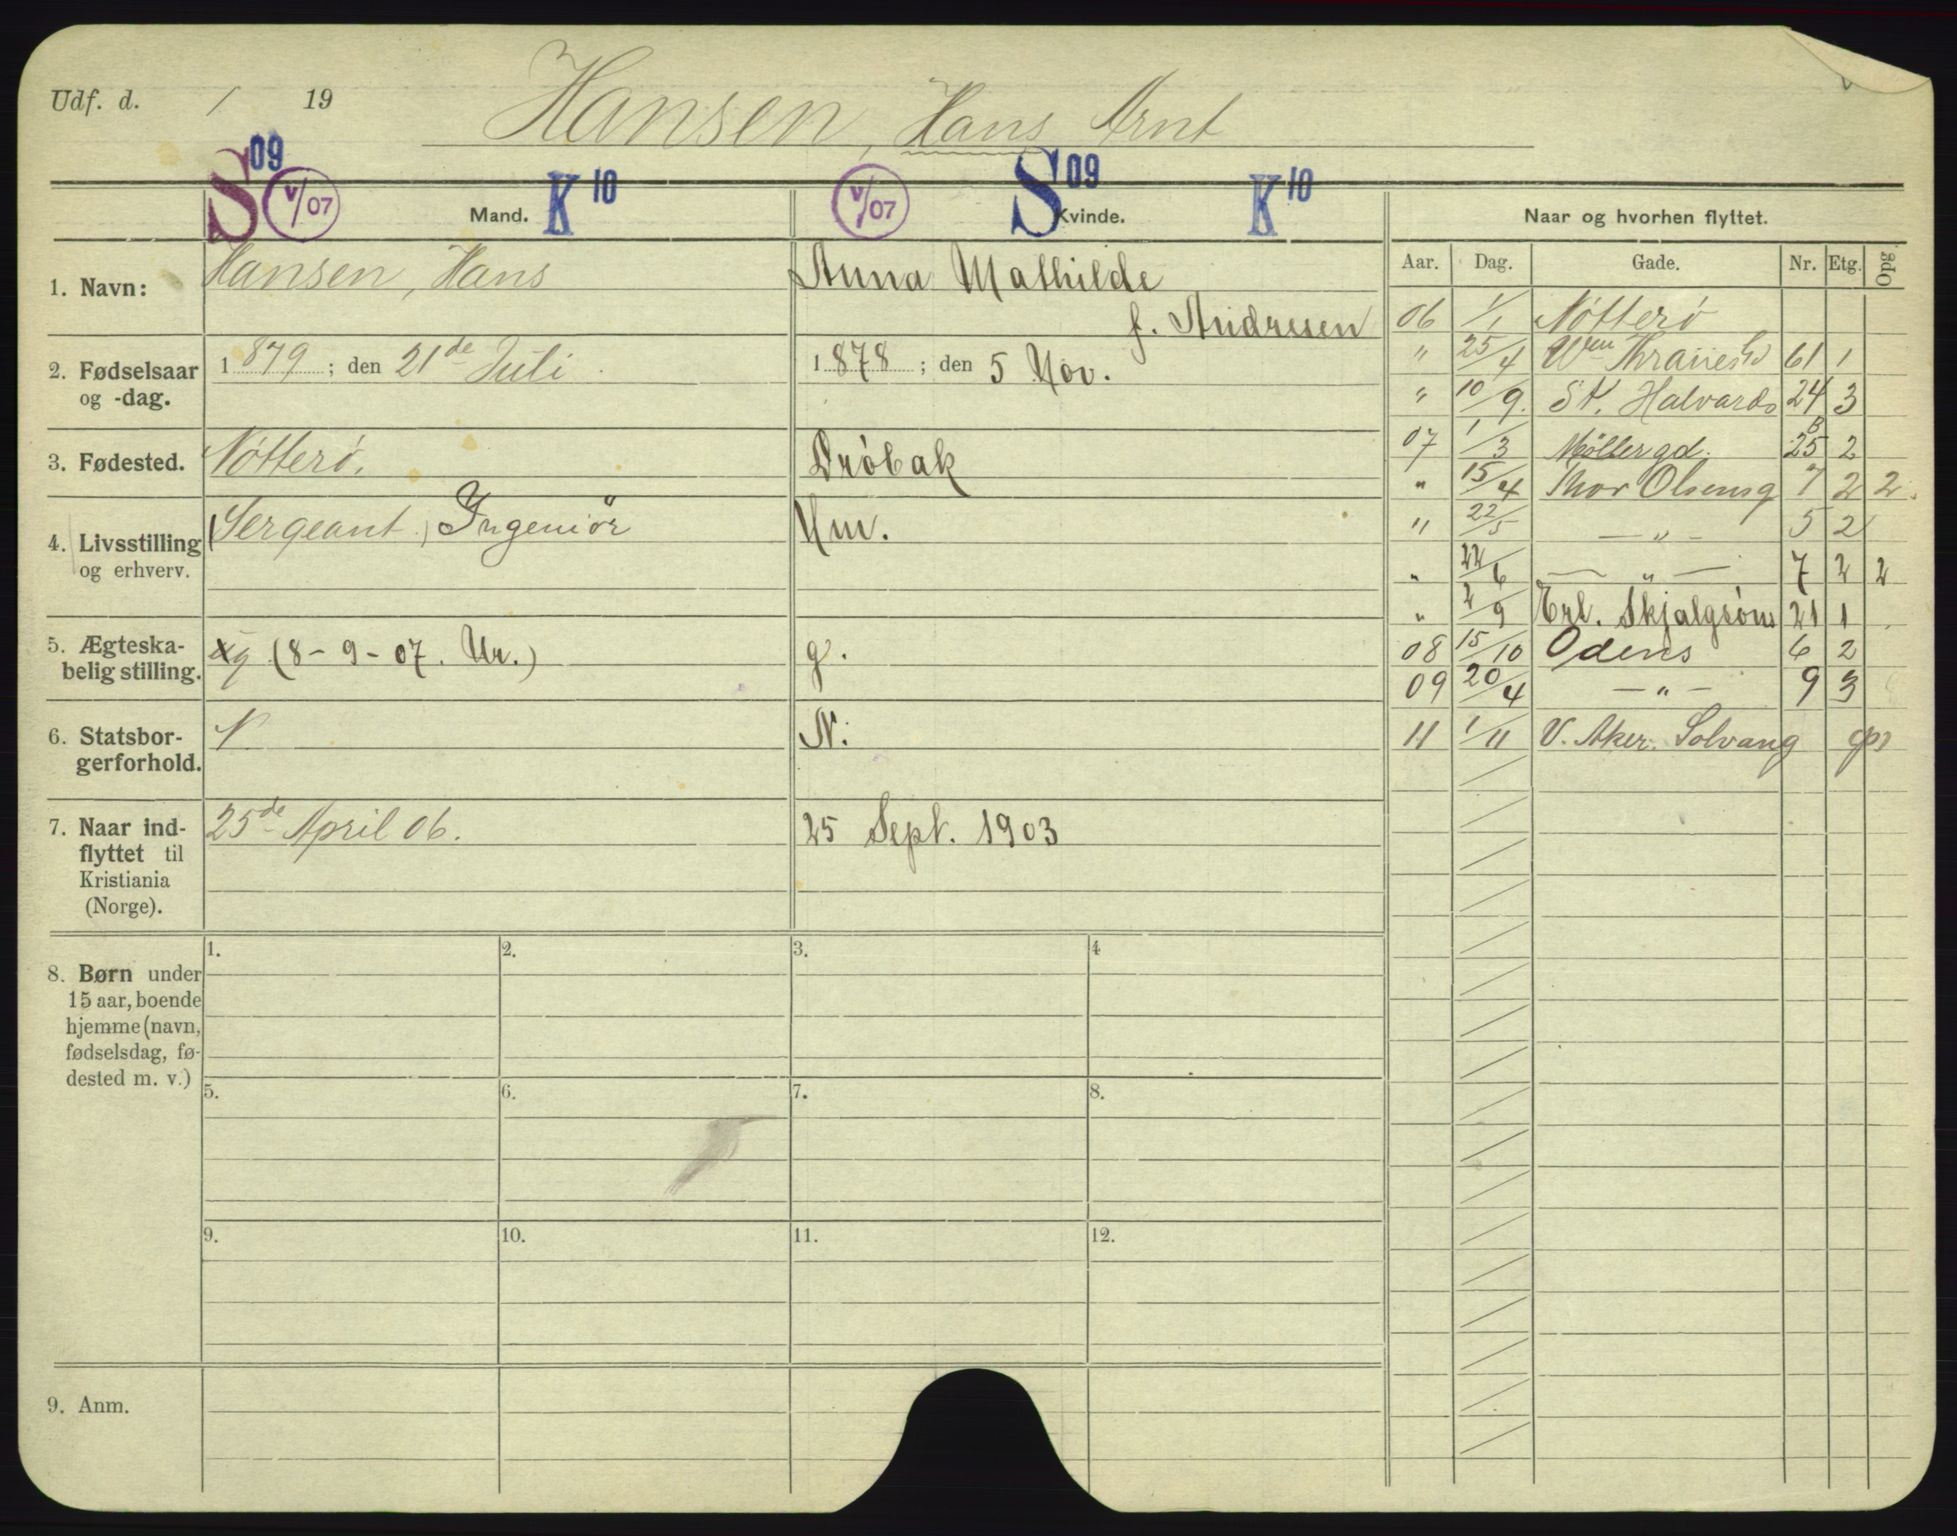 Udf. d. / 19
Hansen, Hans Arnt
S 09 V/07 Mand. K 10
V/07 S 09 Kvinde. K 10
Naar og hvorhen flyttet.
Aar. Dag. Gade. Nr. Etg. Opg
1. Navn: Hansen, Hans
Anna Mathilde
f. Andresen
2. Fødselsaar og -dag. 1879; den 21de Juli
1878; den 5 Nov.
3. Fødested. Nøtterø.
Drøbak
4. Livsstilling og erhverv. Sergeant, Ingeniør
Hm.
5. Ægteska-
belig stilling. g (8-9-07. Ur.)
g.
6. Statsbor-
gerforhold. N
N.
7. Naar ind-
flyttet til
Kristiania
(Norge). 25de April 06.
25 Sept. 1903
06 1/1 Nøtterø
" 25/4 Wm Thranesgd 61 1
" 10/9 St. Halvards 24 3
07 1/3 Møllergd. 25 B 2
" 15/4 Thor Olsensg 7 2 2
" 22/5 — " — 5 2
" 22/6 — " — 7 2 2
" 2/9 Erl. Skjalgsøns 21 1
08 15/10 Odens 6 2
09 20/4 — " — 9 3
11 1/11 V. Aker. Solvang
8. Børn under
15 aar, boende
hjemme (navn,
fødselsdag, fø-
dested m. v.)
1. 2. 3. 4
5. 6. 7. 8.
9. 10. 11. 12.
9. Anm.